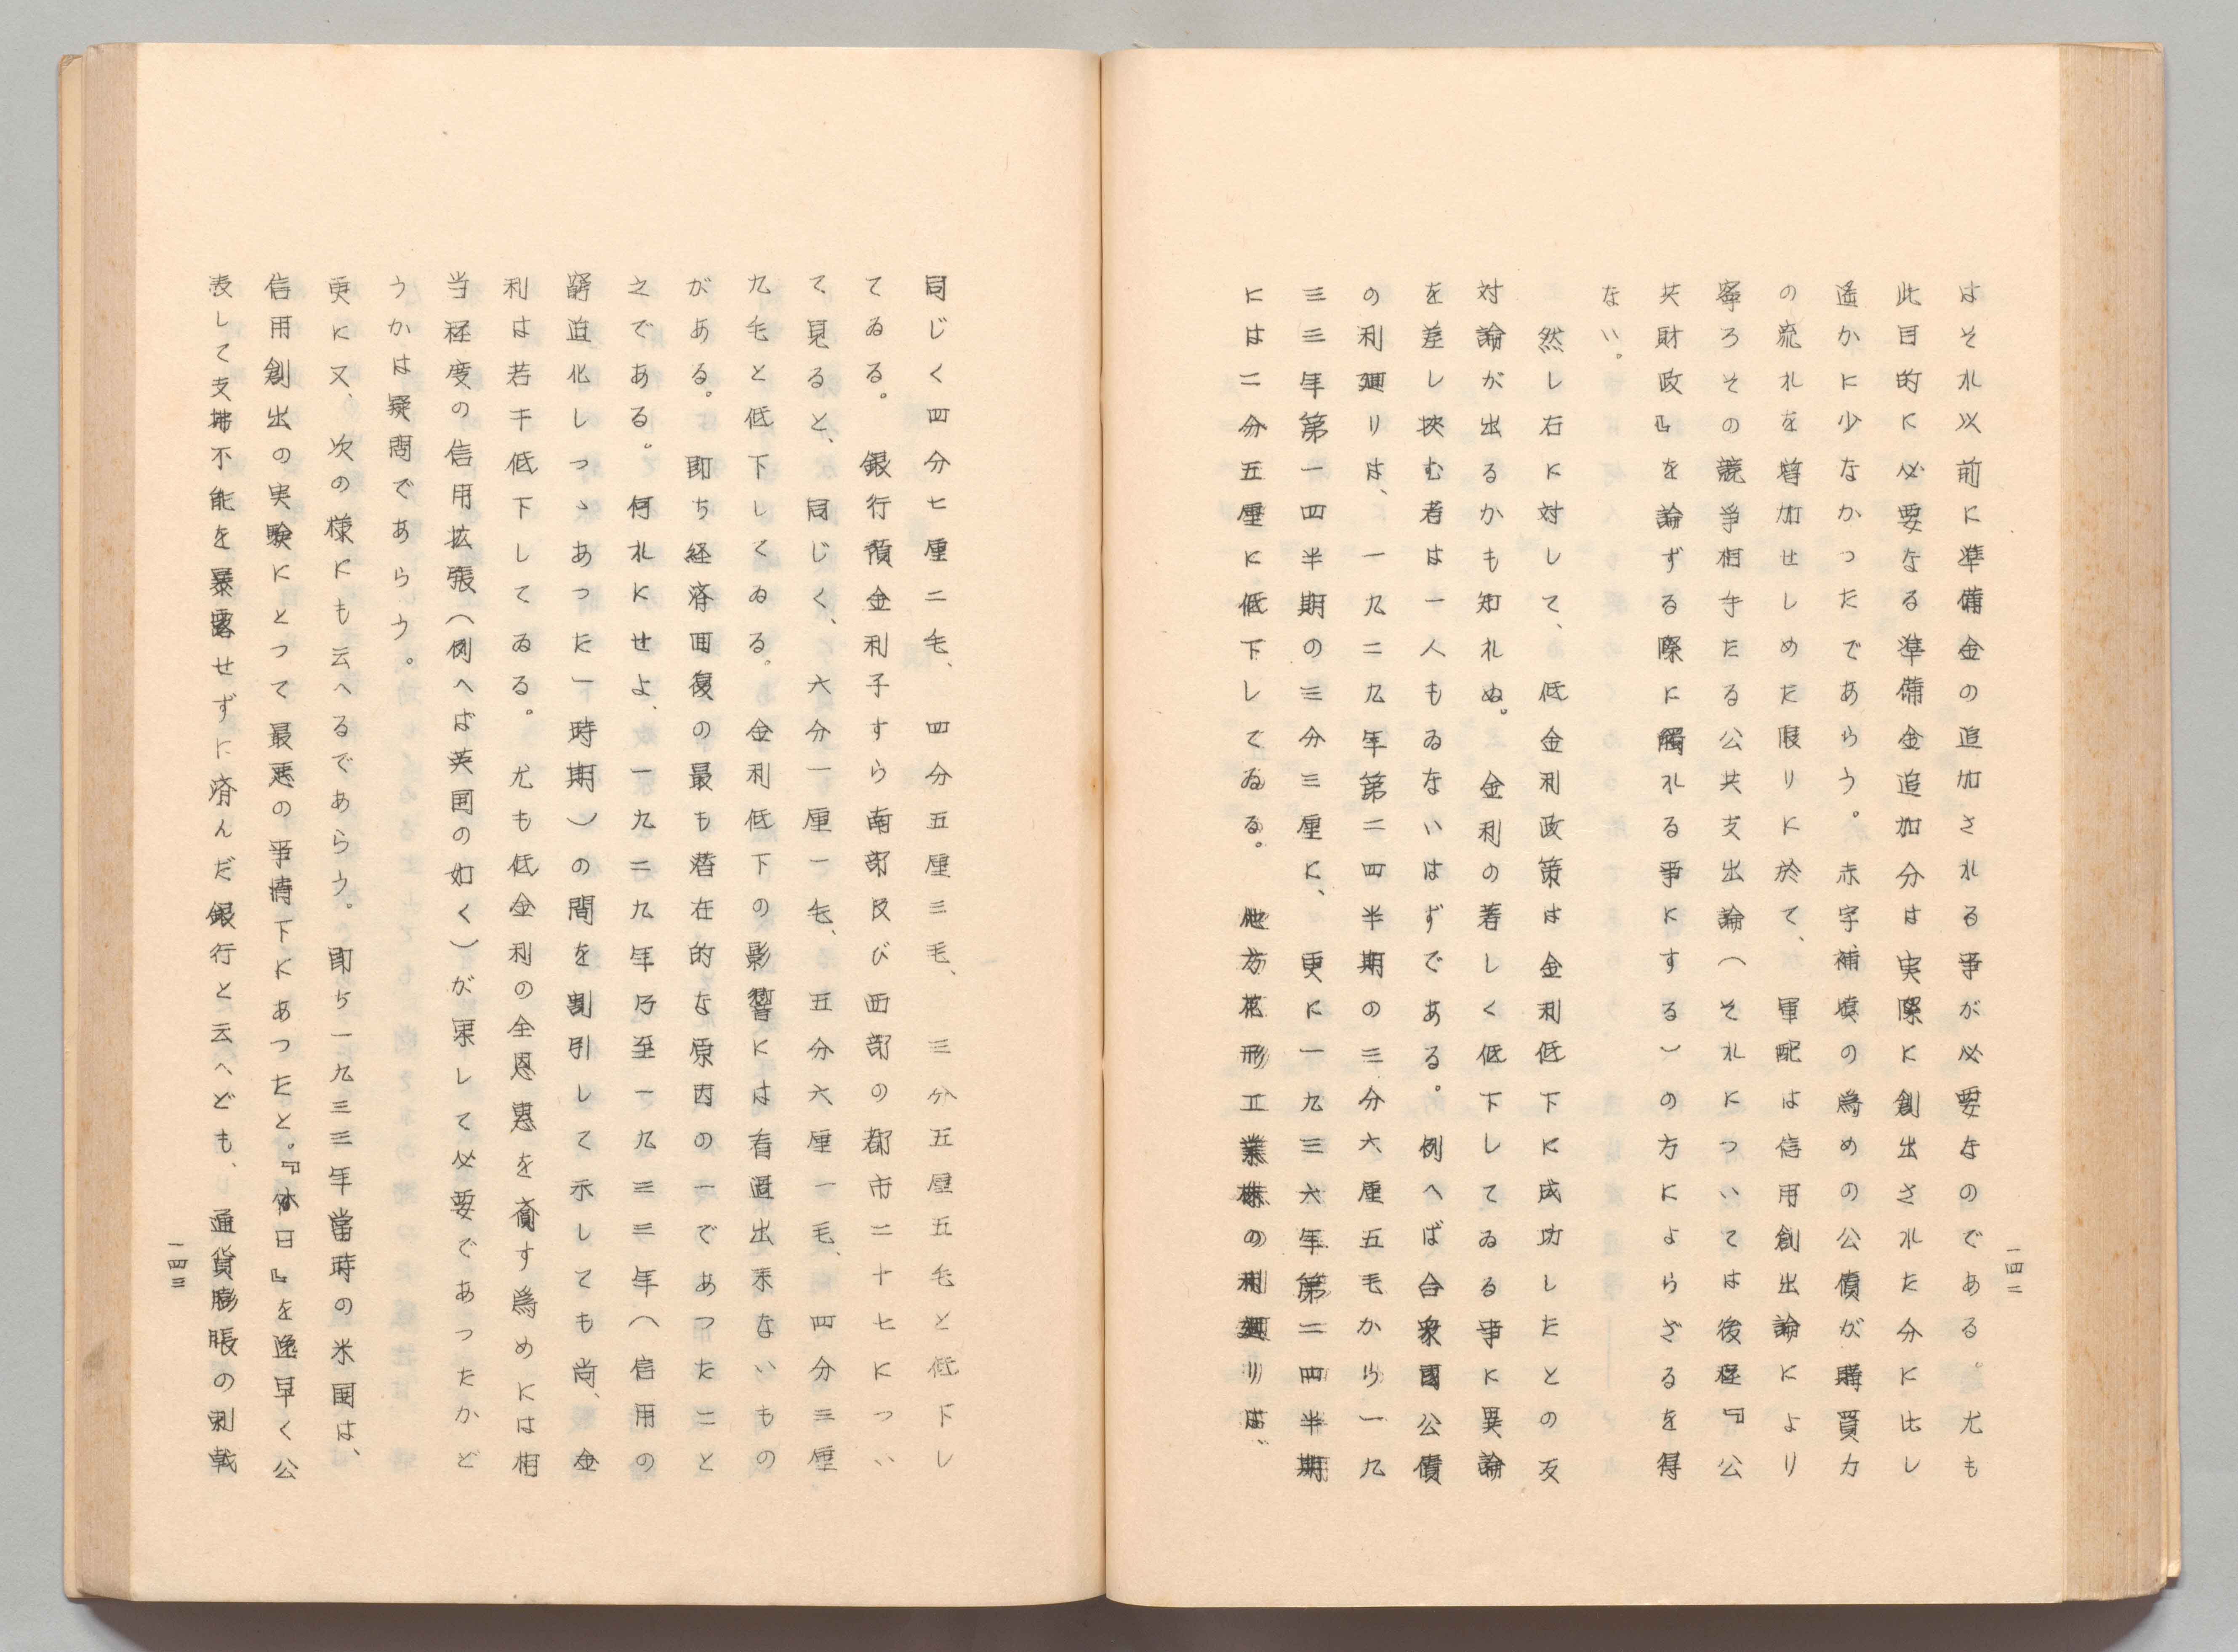 はそれ以前に準備金の追加される事が必要なのである。尤も
此目的に必要なる準備金追加分は実際に創出された分に比し
遙かに少なかったであらう。赤字補塡の為めの公債が購買力
の流れを増加せしめた限りに於て、軍配は信用創出論により
寧ろその競争相手たる公共支出論（それについては後程『公
共財政』を論ずる際に觸れる事にする）の方によらざるを得
ない。
然し右に対して、低金利政策は金利低下に成功したとの反
対論が出るかも知れぬ。金利の著しく低下してゐる事に異論
を差し挾む者は一人もゐないはずである。例へば合衆國公債
の利廻りは、一九二九年第二四半期の三分六厘五毛から一九
三三年第一四半期の三分三厘に、更に一九三六年第二四半期
には二分五厘に低下してゐる。他方花形工業株の利廻りは、
一四二
同じく四分七厘二毛、四分五厘三毛、三分五厘五毛と低下し
てゐる。銀行預金利子すら南部及び西部の都市二十七につい
て見ると、同じく、六分一厘一毛、五分六厘一毛、四分三厘
九毛と低下してゐる。金利低下の影響には看過出来ないもの
がある。即ち経済回復の最も潜在的な原因の一であつたこと
之である。何れにせよ、一九二九年乃至一九三三年（信用の
窮迫化しつゝあつた一時期）の間を割引して示しても尚、金
利は若干低下してゐる。尤も低金利の全恩恵を齎す為めには相
当程度の信用拡張（例へば英国の如く）が果して必要であつたかど
うかは疑問であらう。
更に又、次の様にも云へるであらう。即ち一九三三年當時の米国は、
信用創出の実験にとつて最悪の事情下にあつたと。『休日』を逸早く公
表して支拂不能を暴露せずに済んだ銀行と云へども、通貨膨脹の刺戟
一四三